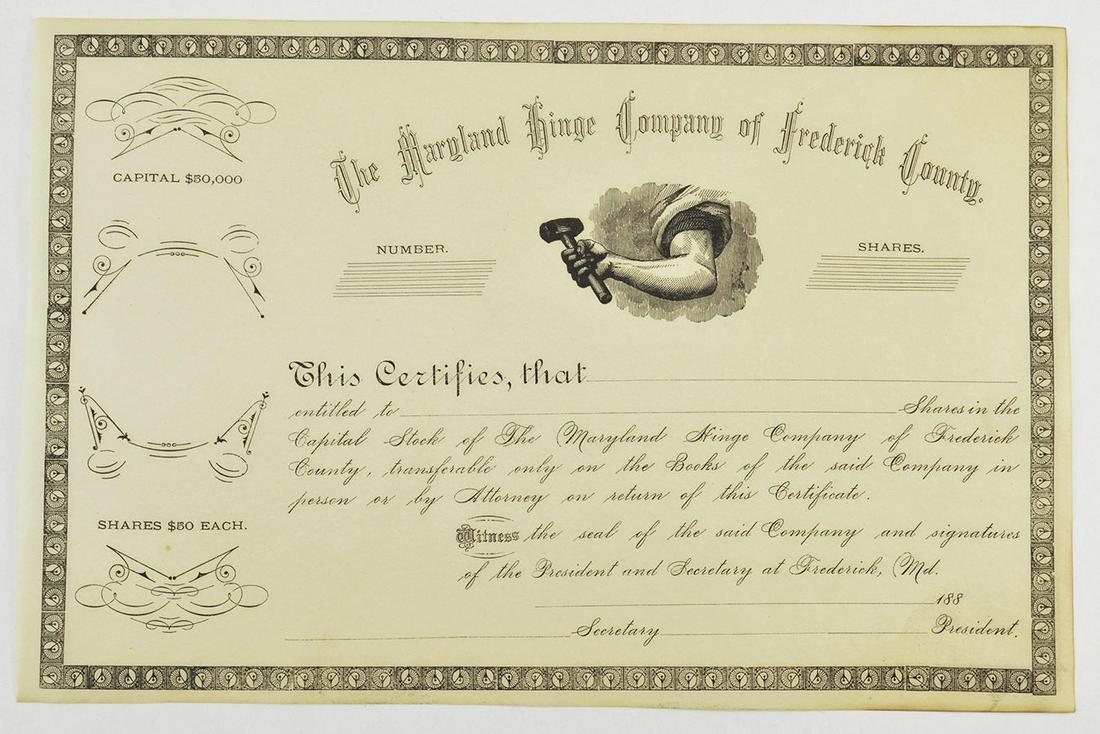 The Maryland Hinge Company of Frederick County.
CAPITAL $50,000
NUMBER.
SHARES.
This Certifies, that
entitled to Shares in the
Capital Stock of The Maryland Hinge Company of Frederick
County, transferable only on the Books of the said Company in
person or by Attorney on return of this Certificate.
SHARES $50 EACH.
Witness the seal of the said Company and signatures
of the President and Secretary at Frederick, Md.
188
Secretary President.